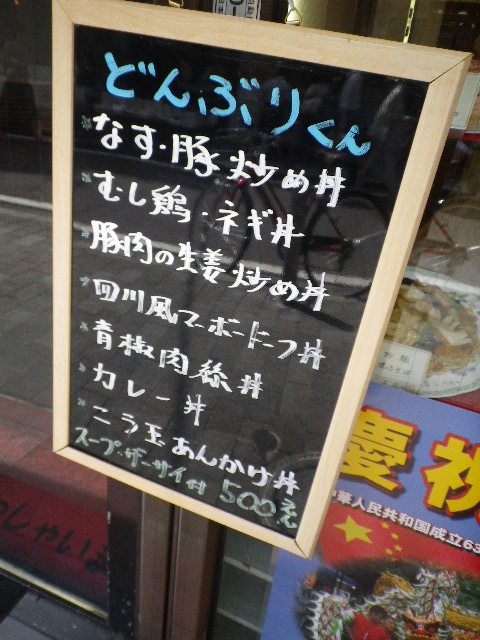 どんぶりくん
なす・豚炒め丼
むし鶏・ネギ丼
豚肉の生姜炒め丼
四川風マーボードーフ丼
青椒肉絲丼
カレー丼
こう玉あんかけ丼
スープ・ザーサイ付 500えん
慶祝
中華人民共和国成立63